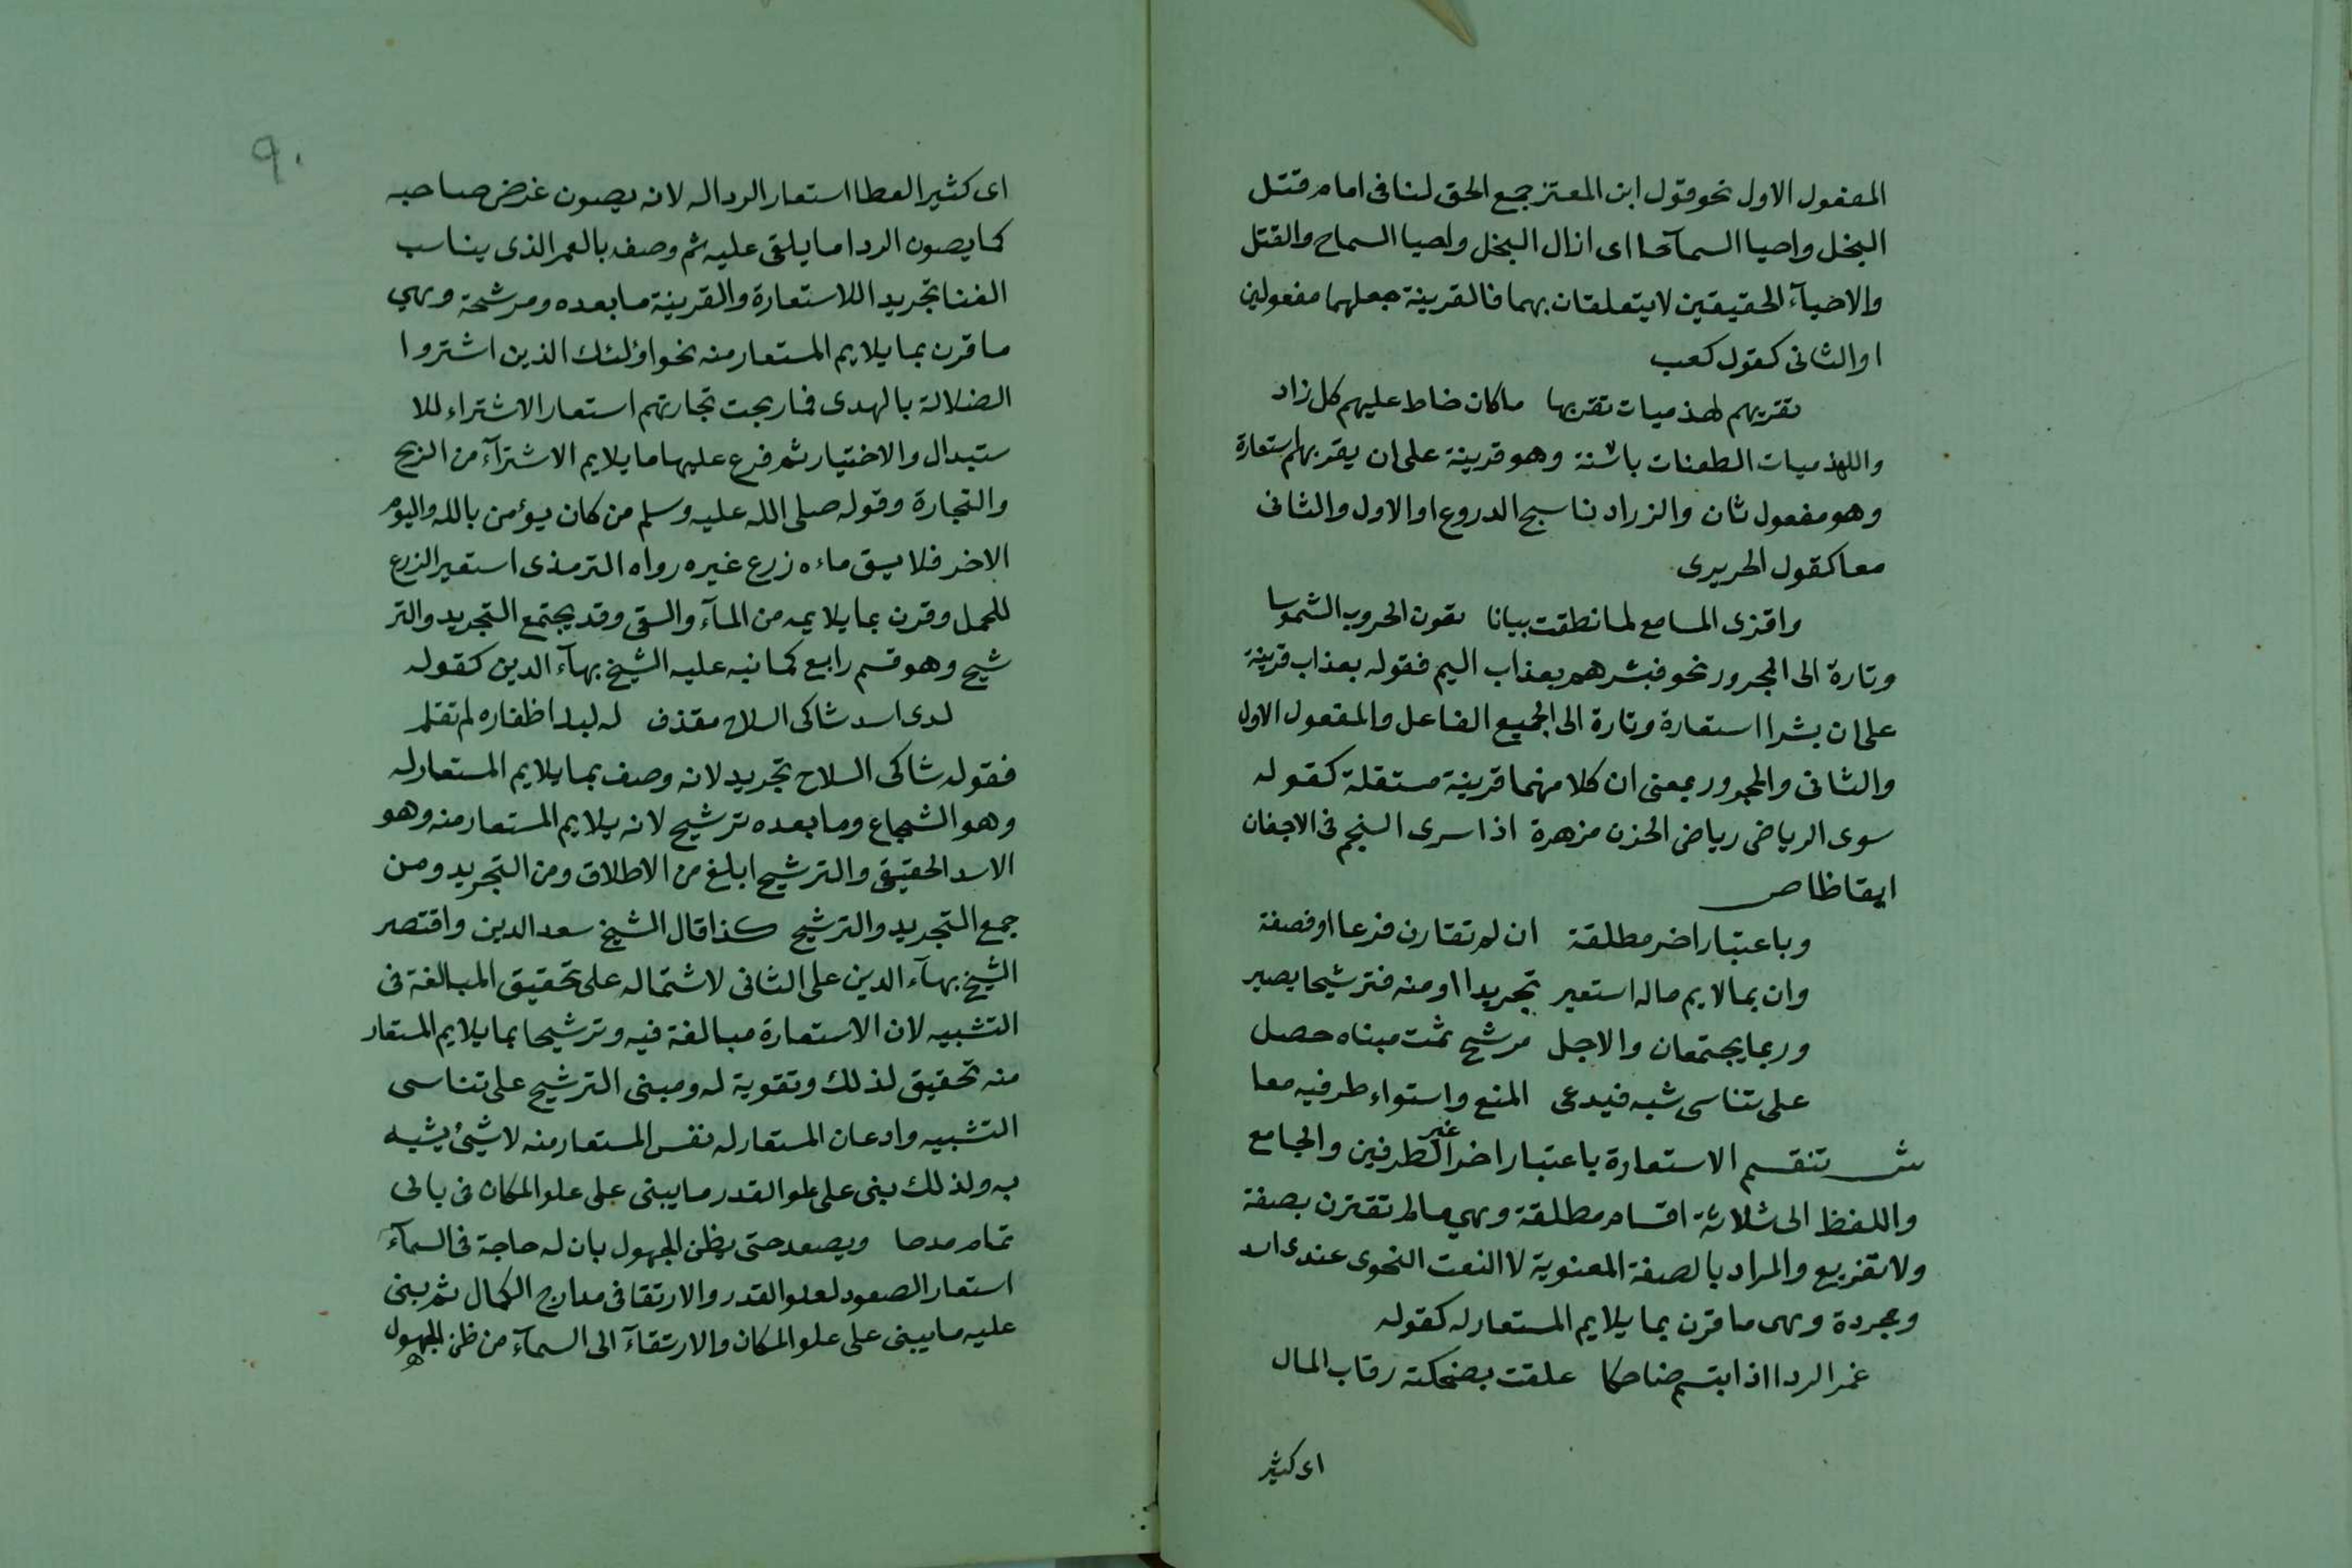 المفعول الاول نحو قول ابن المعتز جمع الحق لنا فى امام قتل
البخل واحيا السماحا اى ازال البخل واحيا السماح والقتل
والاحياء الحقيقيين لا يتعلقان بهما فالقرينة جعلهما مفعولين
او الثانى كقول كعب
نقريهم لهذميات نقد بها ما كان خاط عليهم كل زاد
واللهذميات الطعنات باسنة وهو قرينة على ان يقر بهم استعارة
وهو مفعول ثان والزراد ناسج الدروع او الاول والثانى
معا كقول الحريرى
واقرى المسامع لما نطقت بيانا يقون الحروب الشموسا
وتارة الى المجرور نحو فبشرهم بعذاب اليم فقوله بعذاب قرينة
على ان بشر استعارة وتارة الى الجميع الفاعل والمفعول الاول
والثانى والمجرور بمعنى ان كلا منهما قرينة مستقلة كقوله
سوى الرياض رياض الحزن مزهرة اذا سرى النجم فى الاجفان
ايقاظا ص
وباعتبار اخر مطلقة ان لم تقارن فرعا او فصفة
وان بما لايم ما له استعير تجريدا او منه فترشيحا يصير
وربما يجتمعان والاجل مرشح ثمت مبناه حصل
على تناسى شبه فيدعى المنع واستواء طرفيه معا
ش تنقسم الاستعارة باعتبار اخر غير الطرفين والجامع
واللفظ الى ثلاثة اقسام مطلقة وهى ما لم تقترن بصفة
ولا تفريع والمراد بالصفة المعنوية لا النعت النحوى عندى اسد
ومجردة وهى ما قرن بما يلايم المستعار له كقوله
غمر الردا اذا ابتسم ضاحكا علقت بضحكته رقاب المال
اى كثير
٩٠
اى كثير العطا استعار الردا له لانه يصون غرض صاحبه
كما يصون الردا ما يلقى عليه ثم وصفه بالغمر الذى يناسب
الفنا تجريدا للاستعارة والقرينة ما بعده ومرشحة وهى
ما قرن بما يلايم المستعار منه نحو اولئك الذين اشتروا
الضلالة بالهدى فما ربحت تجارتهم استعار الاشتراء للا
ستبدال والاختيار ثم فرع عليها ما يلايم الاشتراء من الربح
والتجارة وقوله صلى الله عليه وسلم من كان يؤمن بالله واليوم
الاخر فلا يسق ماءه زرع غيره رواه الترمذى استعير الزرع
للحمل وقرن بما يلايمه من الماء والسقى وقد يجتمع التجريد والتر
شيح وهو قسم رابع كما نبه عليه الشيخ بهاء الدين كقوله
لدى اسد شاكى السلاح مقذف له لبد اظفاره لم تقلم
فقوله شاكى السلاح تجريد لانه وصف بما يلايم المستعار له
وهو الشجاع وما بعده ترشيح لانه يلايم المستعار منه وهو
الاسد الحقيقى والترشيح ابلغ من الاطلاق ومن التجريد ومن
جمع التجريد والترشيح كذا قال الشيخ سعد الدين واقتصر
الشيخ بهاء الدين على الثانى لاشتماله على تحقيق المبالغة فى
التشبيه لان الاستعارة مبالغة فيه وترشيحا بما يلايم المستعار
منه تحقيق لذلك وتقوية له ومبنى الترشيح على تناسى
التشبيه وادعان المستعار له نفس المستعار منه لا شيئ يشبه
به ولذلك يبنى على علو القدر ما يبنى على علو المكان فى بابى
تمام مدحا ويصعد حتى يظن الجهول بان له حاجة فى السماء
استعار الصعود لعلو القدر والارتقا فى مدارج الكمال ثم بنى
عليه ما يبنى على علو المكان والارتقاء الى السماء من ظن الجهول